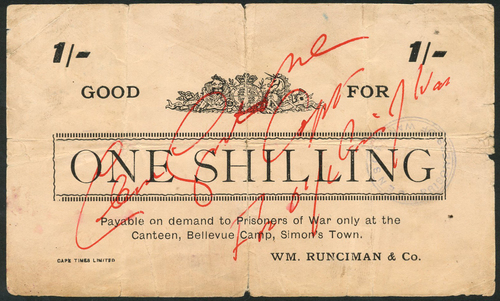 1/- 1/-
GOOD FOR
ONE SHILLING
Payable on demand to Prisoners of War only at the
Canteen, Bellevue Camp, Simon's Town.
CAPE TIMES LIMITED WM. RUNCIMAN & Co.
Capt
for o/c Pris of War